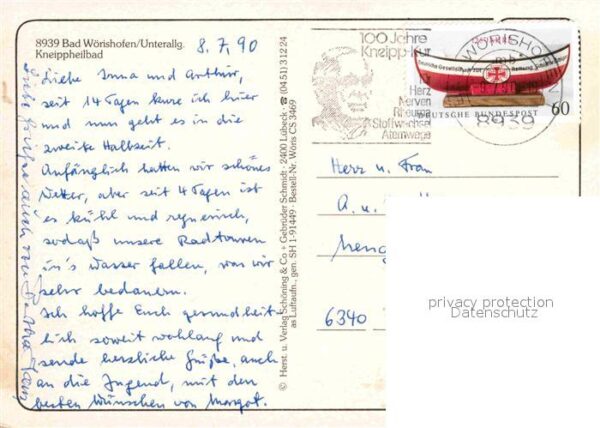 8939 Bad Wörishofen/Unterallg.
Kneippheilbad
8.7.90
Liebe Inna und Arthur,
seit 14 Tagen kure ich hier
und nun geht es in die
zweite Halbzeit.
Anfänglich hatten wir schönes
Wetter, aber seit 4 Tagen ist
es kühl und regnerisch,
sodaß unsere Radtouren
in's Wasser fallen, was wir
sehr bedauern.
Ich hoffe Euch gesundheit-
lich soweit wohlauf und
sende herzliche Grüße, auch
an die Jugend, mit den
besten Wünschen von Margot.
© Herst. u. Verlag Schöning & Co + Gebrüder Schmidt · 2400 Lübeck · ☎ (0451) 31224
as Luftaufn., gen. SH 1-91449 · Bestell-Nr. Wöris CS 3469
100 Jahre
Kneipp-Kur
Herz
Nerven
Rheuma
Stoffwechsel
Atemwege
WÖRISHOFEN
8939
Deutsche Gesellschaft zur Rettung Schiffbrüchiger
DEUTSCHE BUNDESPOST
60
Herrn u. Frau
A. u.
Meng
6340
privacy protection
Datenschutz